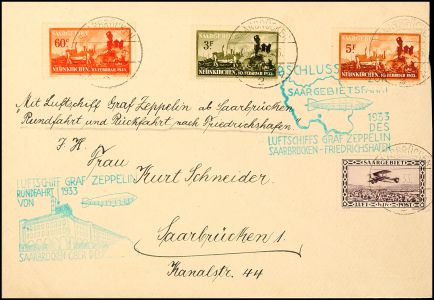 SAARGEBIET
60c
NEUNKIRCHEN, 10. FEBRUAR 1933.
SAARGEBIET
3F
NEUNKIRCHEN, 10. FEBRUAR 1933.
SAARGEBIET
5F
NEUNKIRCHEN, 10. FEBRUAR 1933.
SAARBRÜCKEN
SCHLUSS
SAARGEBIETS
1933
DES
LUFTSCHIFFS GRAF ZEPPELIN
SAARBRÜCKEN-FRIEDRICHSHAFEN
Mit Luftschiff Graf Zeppelin ab Saarbrücken
Rundfahrt und Rückfahrt nach Friedrichshafen.
Frau
Kurt Schneider
Saarbrücken 1.
Kanalstr. 44
LUFTSCHIFF GRAF ZEPPELIN
RUNDFAHRT 1933
VON
SAARBRÜCKEN ÜBER DEM
SAARGEBIET
LUFT-POST